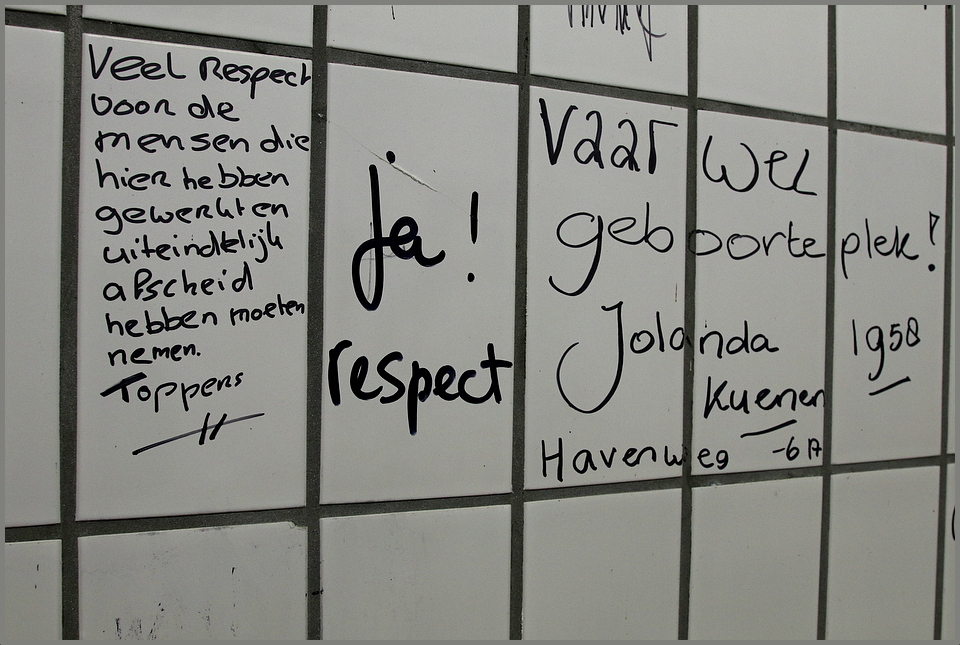 Veel Respect
voor de
mensen die
hier hebben
gewerkt en
uiteindtelijk
afscheid
hebben moeten
nemen.
Toppers
Ja!
respect
Vaar wel
geboorteplek!
Jolanda 1958
Kuenen
Havenweg -6A